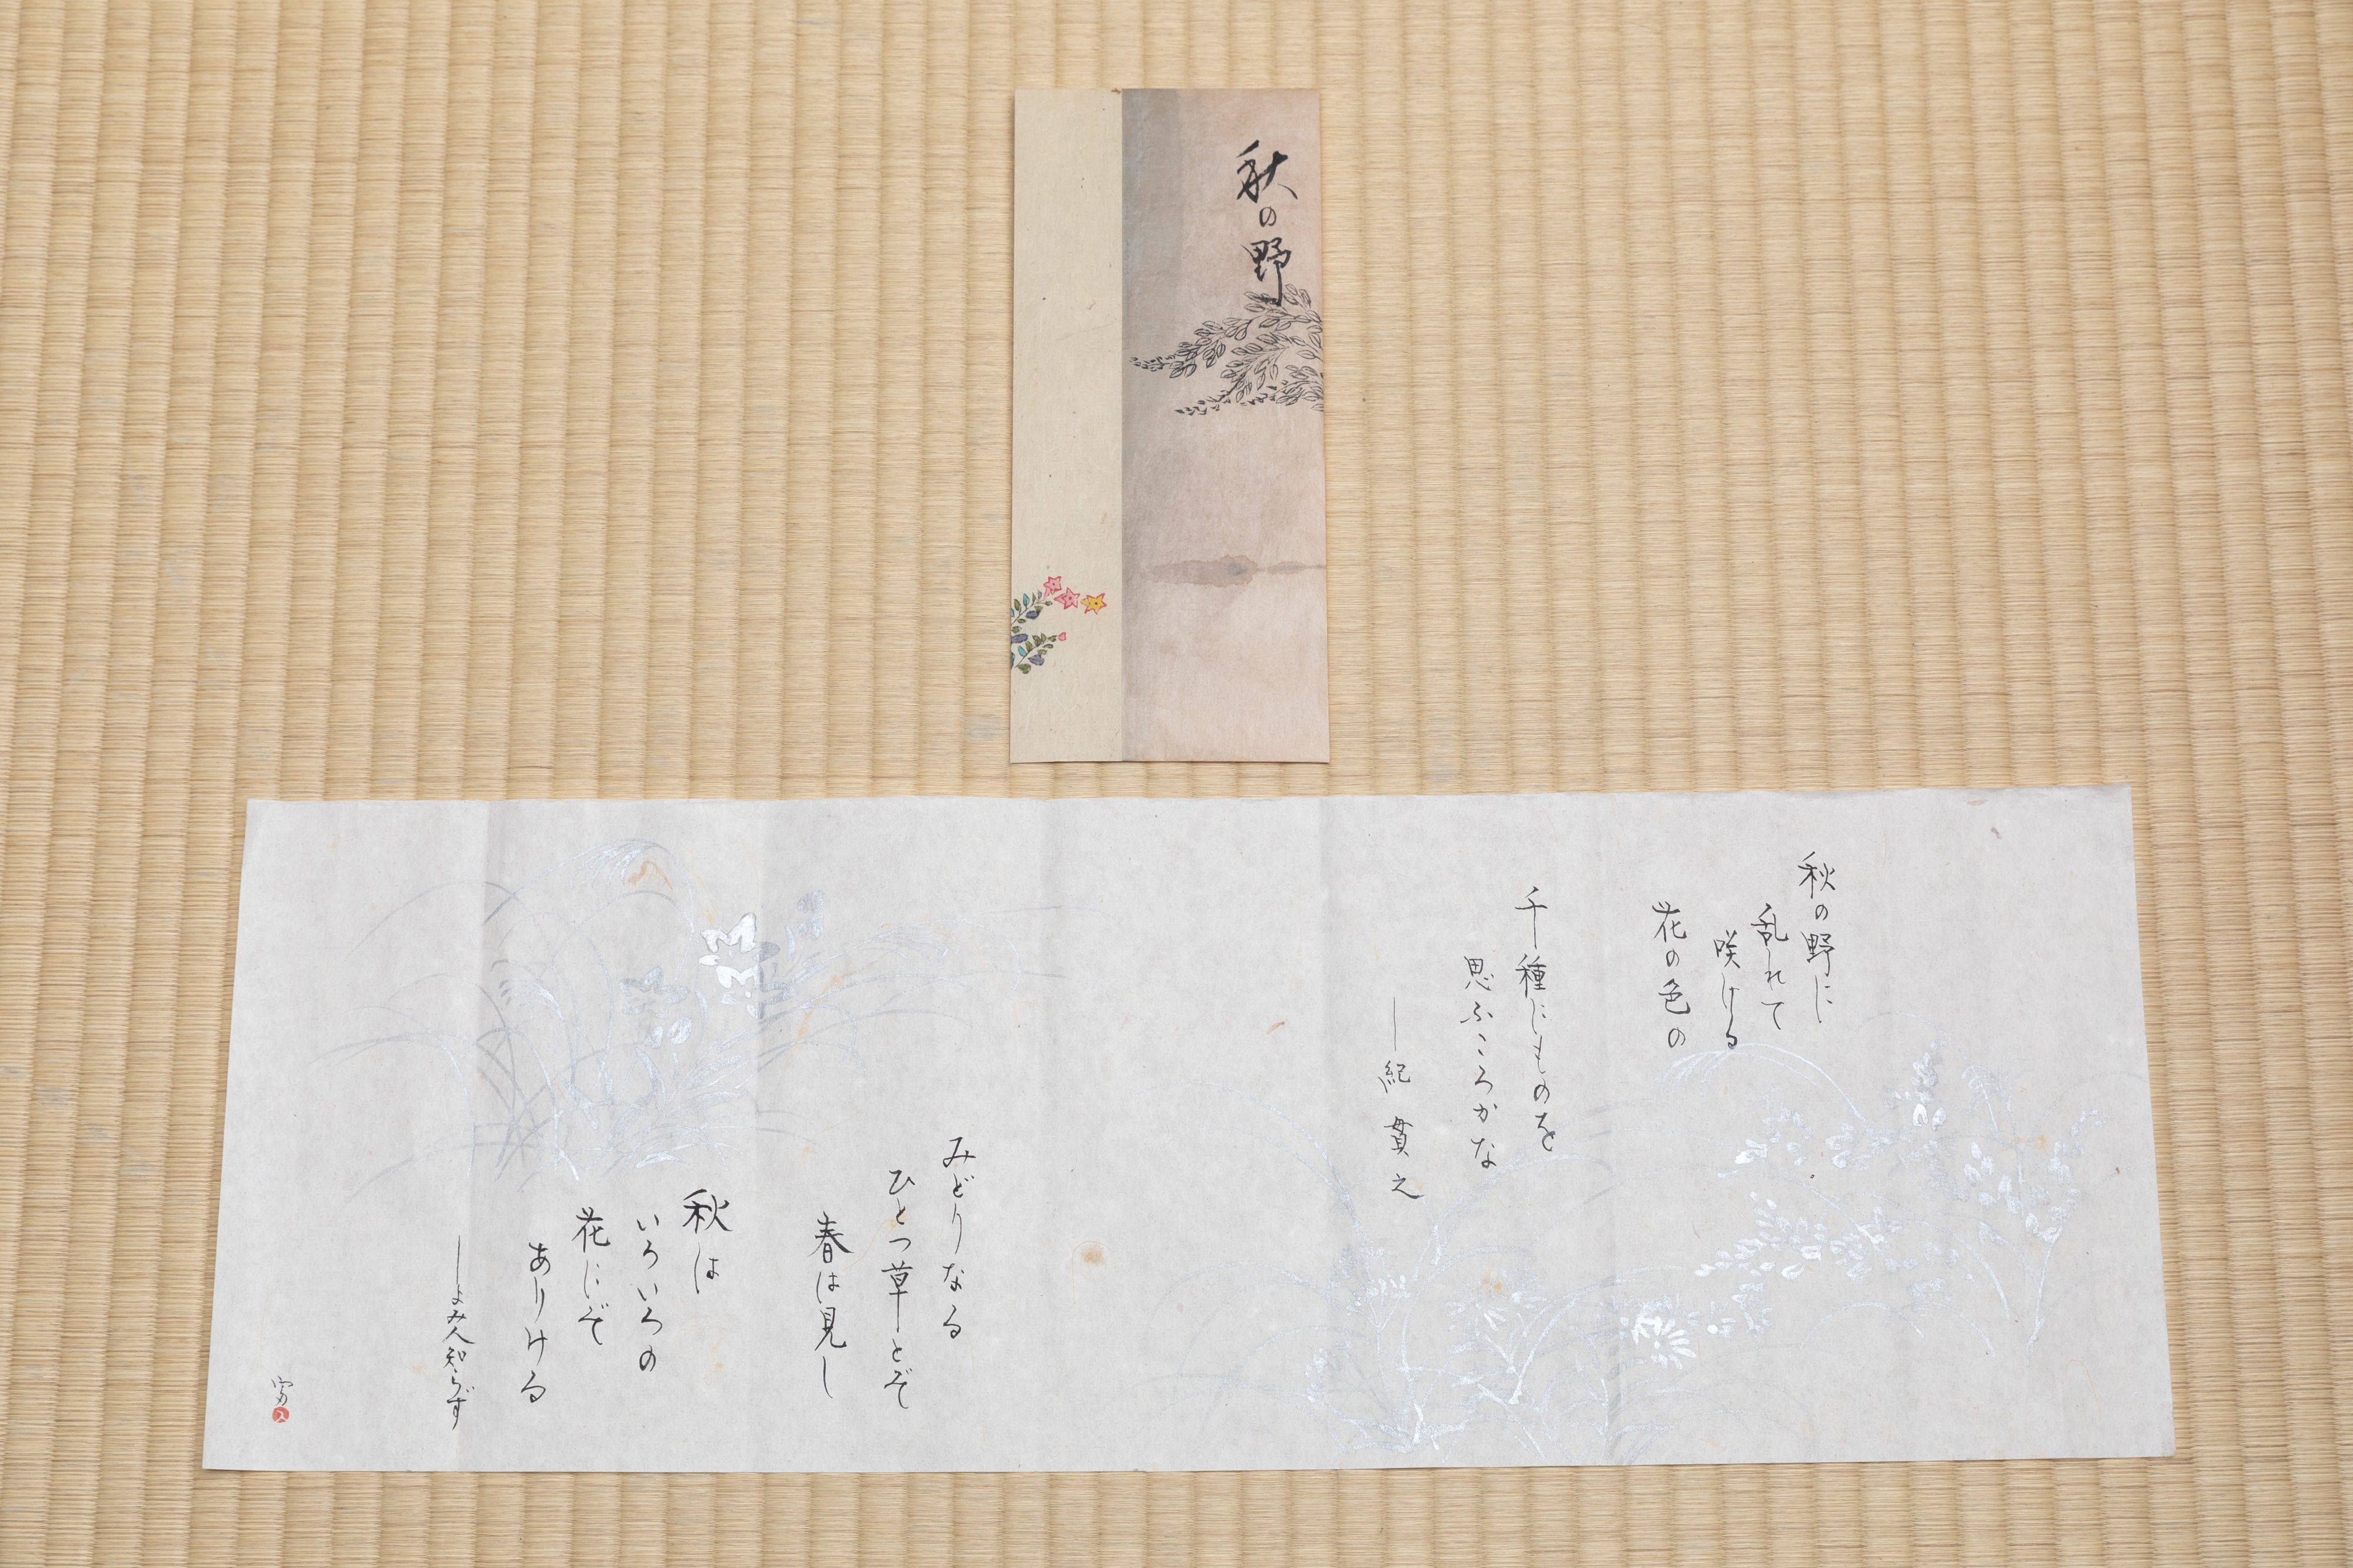 秋の野
秋の野に
乱れて
咲ける
花の色の
千種にものを
思ふこころかな
―紀 貫之
みどりなる
ひとつ草とぞ
春は見し
秋は
いろいろの
花にぞ
ありける
―よみ人知らず